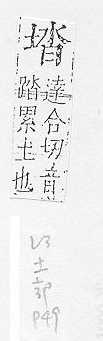 達合切音
踏累土也
土部
P49